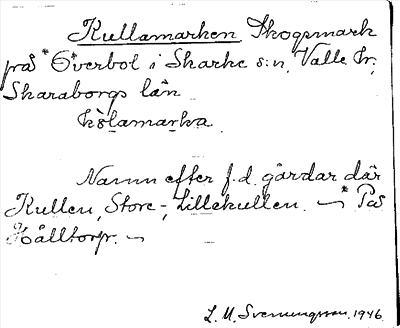 Kullamarken Skogsmark
på *Överbol i Skarke s:n, Valle hr,
Skaraborgs län
kòlamarka
Namn efter f.d. gårdar där
Kullen, Store-, Lillekullen. ⁓ * På
Hålltorp. ⁓
L. M. Svenungsson. 1946